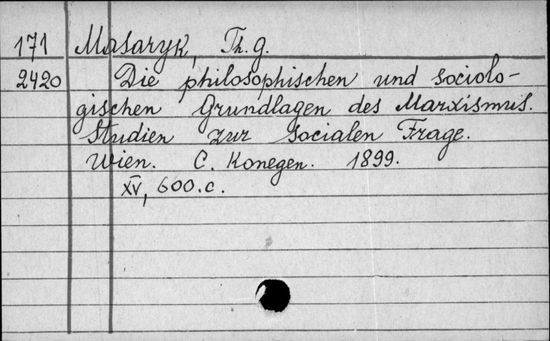 171 Masaryk, Th. G.
2420 Die philosophischen und sociolo-
gischen Grundlagen des Marxismus.
Studien zur socialen Frage.
Wien. C. Konegen. 1899.
XV, 600.c.